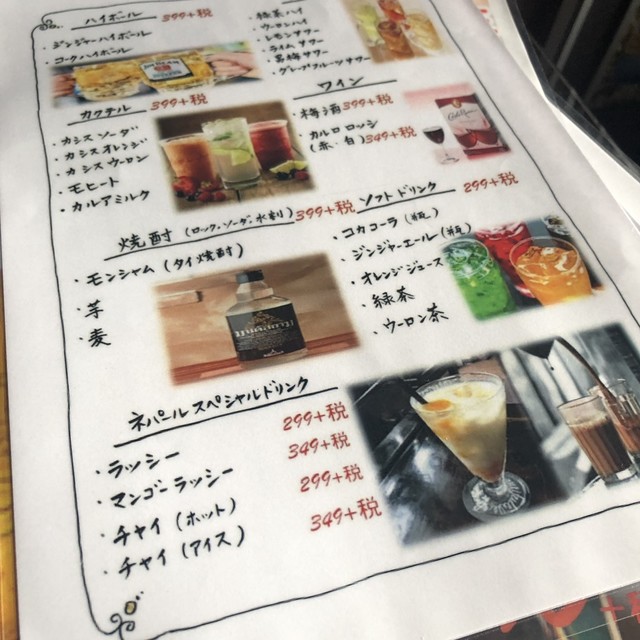 ハイボール 399+税
・ジンジャーハイボール
・コークハイボール
・緑茶ハイ
・ウーロンハイ
・レモンサワー
・ライムサワー
・若梅サワー
・グレープフルーツサワー
カクテル 399+税
・カシスソーダ
・カシスオレンジ
・カシスウーロン
・モヒート
・カルアミルク
ワイン
・梅酒 399+税
・カルロロッシ
(赤、白) 349+税
焼酎 (ロック、ソーダ、水割り) 399+税
・モンシャム (タイ焼酎)
・芋
・麦
ソフトドリンク 299+税
・コカコーラ (瓶)
・ジンジャーエール (瓶)
・オレンジジュース
・緑茶
・ウーロン茶
ネパールスペシャルドリンク
・ラッシー 299+税
・マンゴーラッシー 349+税
・チャイ (ホット) 299+税
・チャイ (アイス) 349+税